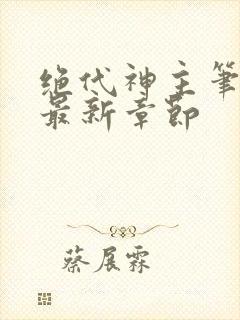 绝代神主笔
最新章节
蔡展霖